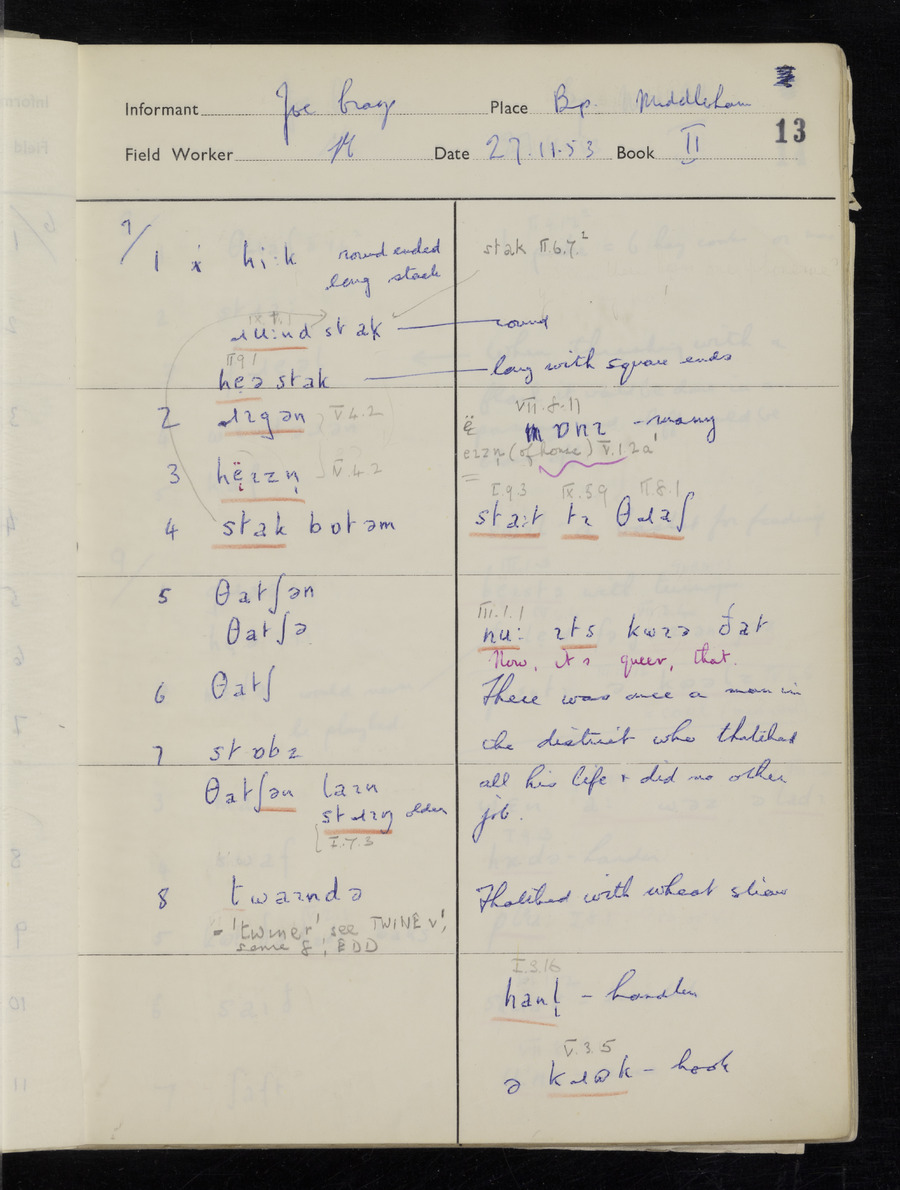 Informant Joe Place Bp. Middleham
13
Field Worker Date 27.11.53 Book II
7/
1 i hi:k round ended
long stack
stak II.6.7²
IX.1.1
ɹuːnd stak — round
II 9 1
hɛə stak — long with square ends
2 ɹɪgən V.4.2
VII.8.11
mɒnɪ - many
3 V.4.2
(of house) V.1.2a'
4 stak botəm
I.9.3 IX.5.9 II.8.1
staːt tɪ θɹaʃ
5 θatʃən
θatʃə
III.1.1
nu: ɪts kwɪə ðat
Now, it's queer, that.
6 θatʃ
There was once a man in
the district who thatched
7 stobz
all his life & did no other
job.
θatʃən laɪn
stɹɪŋ older
I.7.3
8 twaɪndə
Thatched with wheat straw
- 'twiner' see TWINE v',
sense 8; EDD
I.3.16
hanl̩ - handle
V.3.5
ə kɹʊk - hook